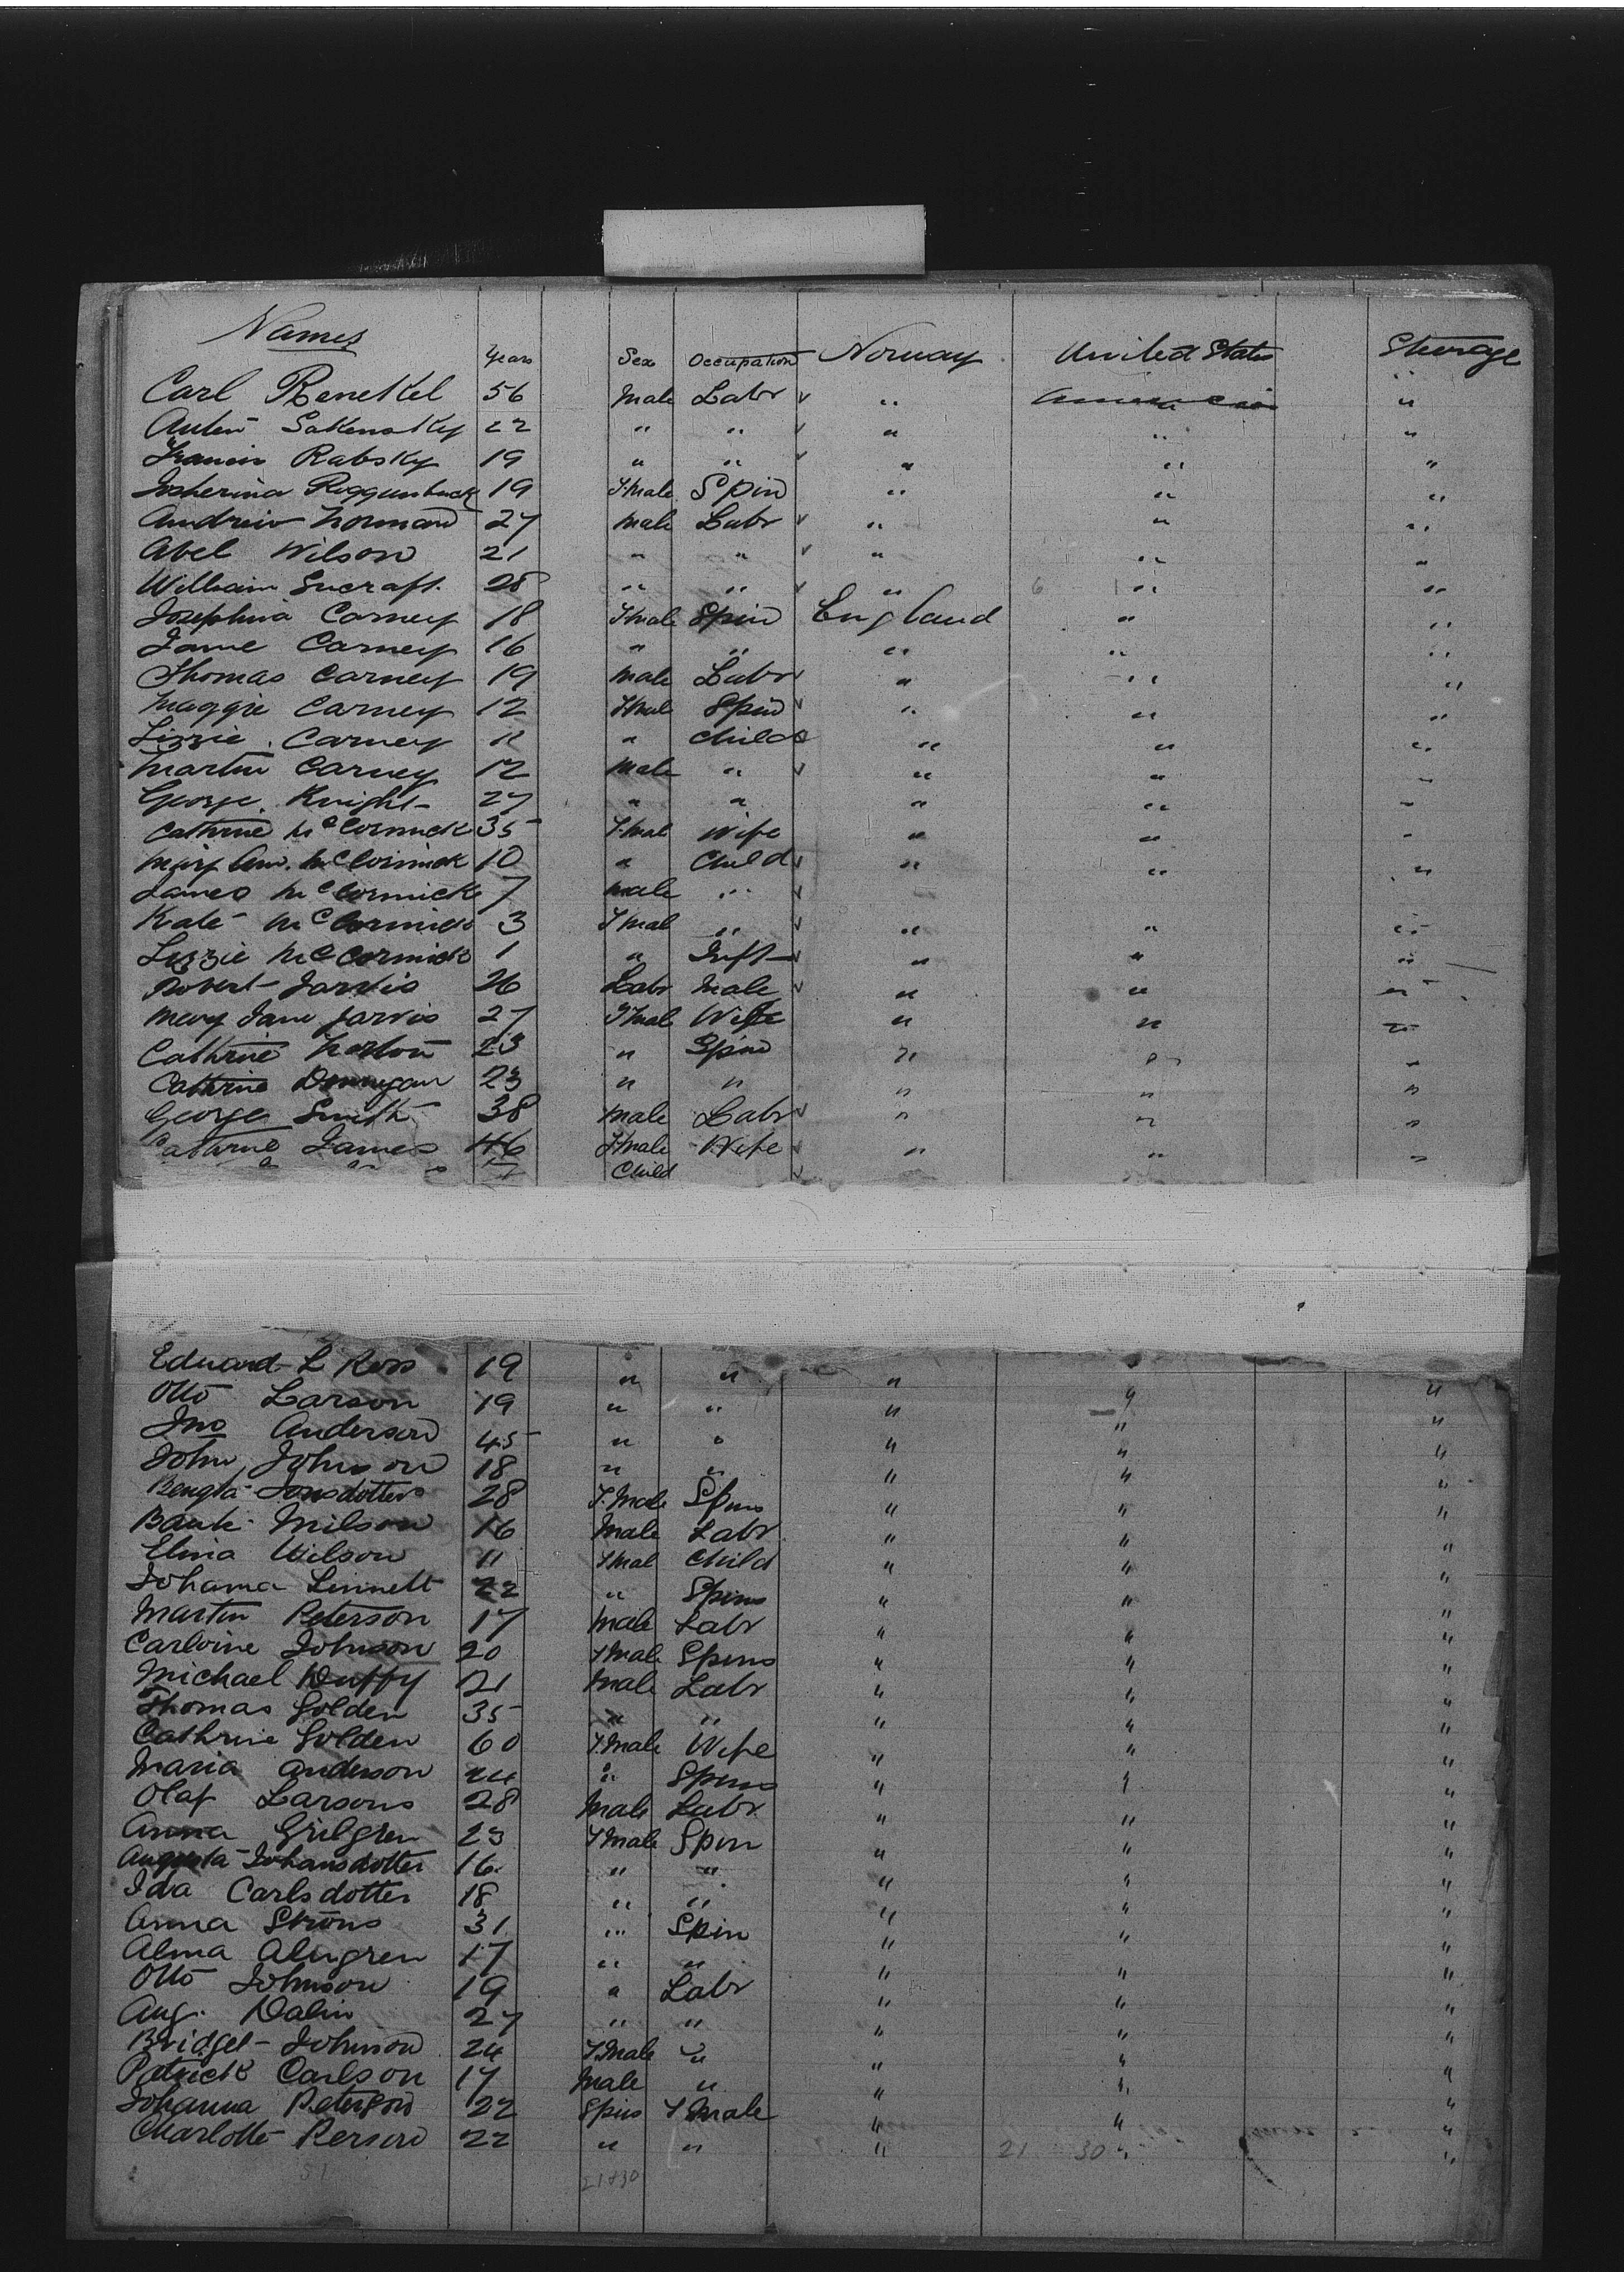 Names Years Sex Occupation Norway United States Steerage
Carl Renekel 56 Male Labr v " "
Anton Sakensky 22 " " v " " "
Francis Rabsky 19 " " v " " "
Josherina Roggenbuck 19 F.Male Spin " " "
Andrew Norman 27 Male Labr v " " "
Abel Wilson 21 " " v " " "
William Sucraft. 28 " " v " 6 " "
Josephina Carney 18 Fmale Spin England " "
Jane Carney 16 " " " " "
Thomas Carney 19 Male Labr v " " "
Maggie Carney 12 Fmal Spin v " " "
Lizzie Carney 11 " Child " " "
Martin Carney 12 Male " v " " "
George Knight 27 " " " " "
Cathrine McCormick 35 F.Mal Wife " " "
Mary Ann McCormick 10 " Child v " " "
James McCormick 7 Male " v
Kate McCormick 3 F Mal " v " " "
Lizzie McCormick 1 " Inft v " " "
Robert Jarvis 26 Labr Male v " " "
Mary Jane Jarvis 27 Fmale Wife " " "
Cathrine Norton 23 " Spin " " "
Cathrine Dennigan 23 " " " " "
George Smith 38 Male Labr v " " "
Cathrine James 46 Fmale Wife v " " "
" " " Child v
Edward L Ross 19 " " " " "
Otto Larson 19 " " " " "
Jno Anderson 45 " " " " "
John Johnson 18 " " " " "
Bengta Jonsdotter 28 F.Male Spins " " "
Bank Milson 16 Male Labr " " "
Elina Wilson 11 Fmal Child " " "
Johanna Linnett 22 " Spins " " "
Martin Peterson 17 Male Labr " " "
Carloine Johnson 20 FMale Spins " " "
Michael Duffy 21 Male Labr " " "
Thomas Golden 35 " " " " "
Cathrine Golden 60 F.Male Wife " " "
Maria Anderson 24 " Spins " " "
Olaf Larsons 28 Male Labr " " "
Anna Grilgren 23 FMale Spin " " "
Augusta Johansdotter 16 " " " " "
Ida Carlsdotter 18 " " " " "
Anna Stroms 31 " Spin " " "
Alma Almgren 17 " " " " "
Otto Johnson 19 " Labr " " "
Aug. Dalin 27 " " " " "
Bridget Johnson 24 F.Male " " " "
Patrick Carlson 17 Male " " " "
Johanna Peterson 22 Spins F Male " " "
Charlotte Person 22 " " " 21 30 " "
51 21+30